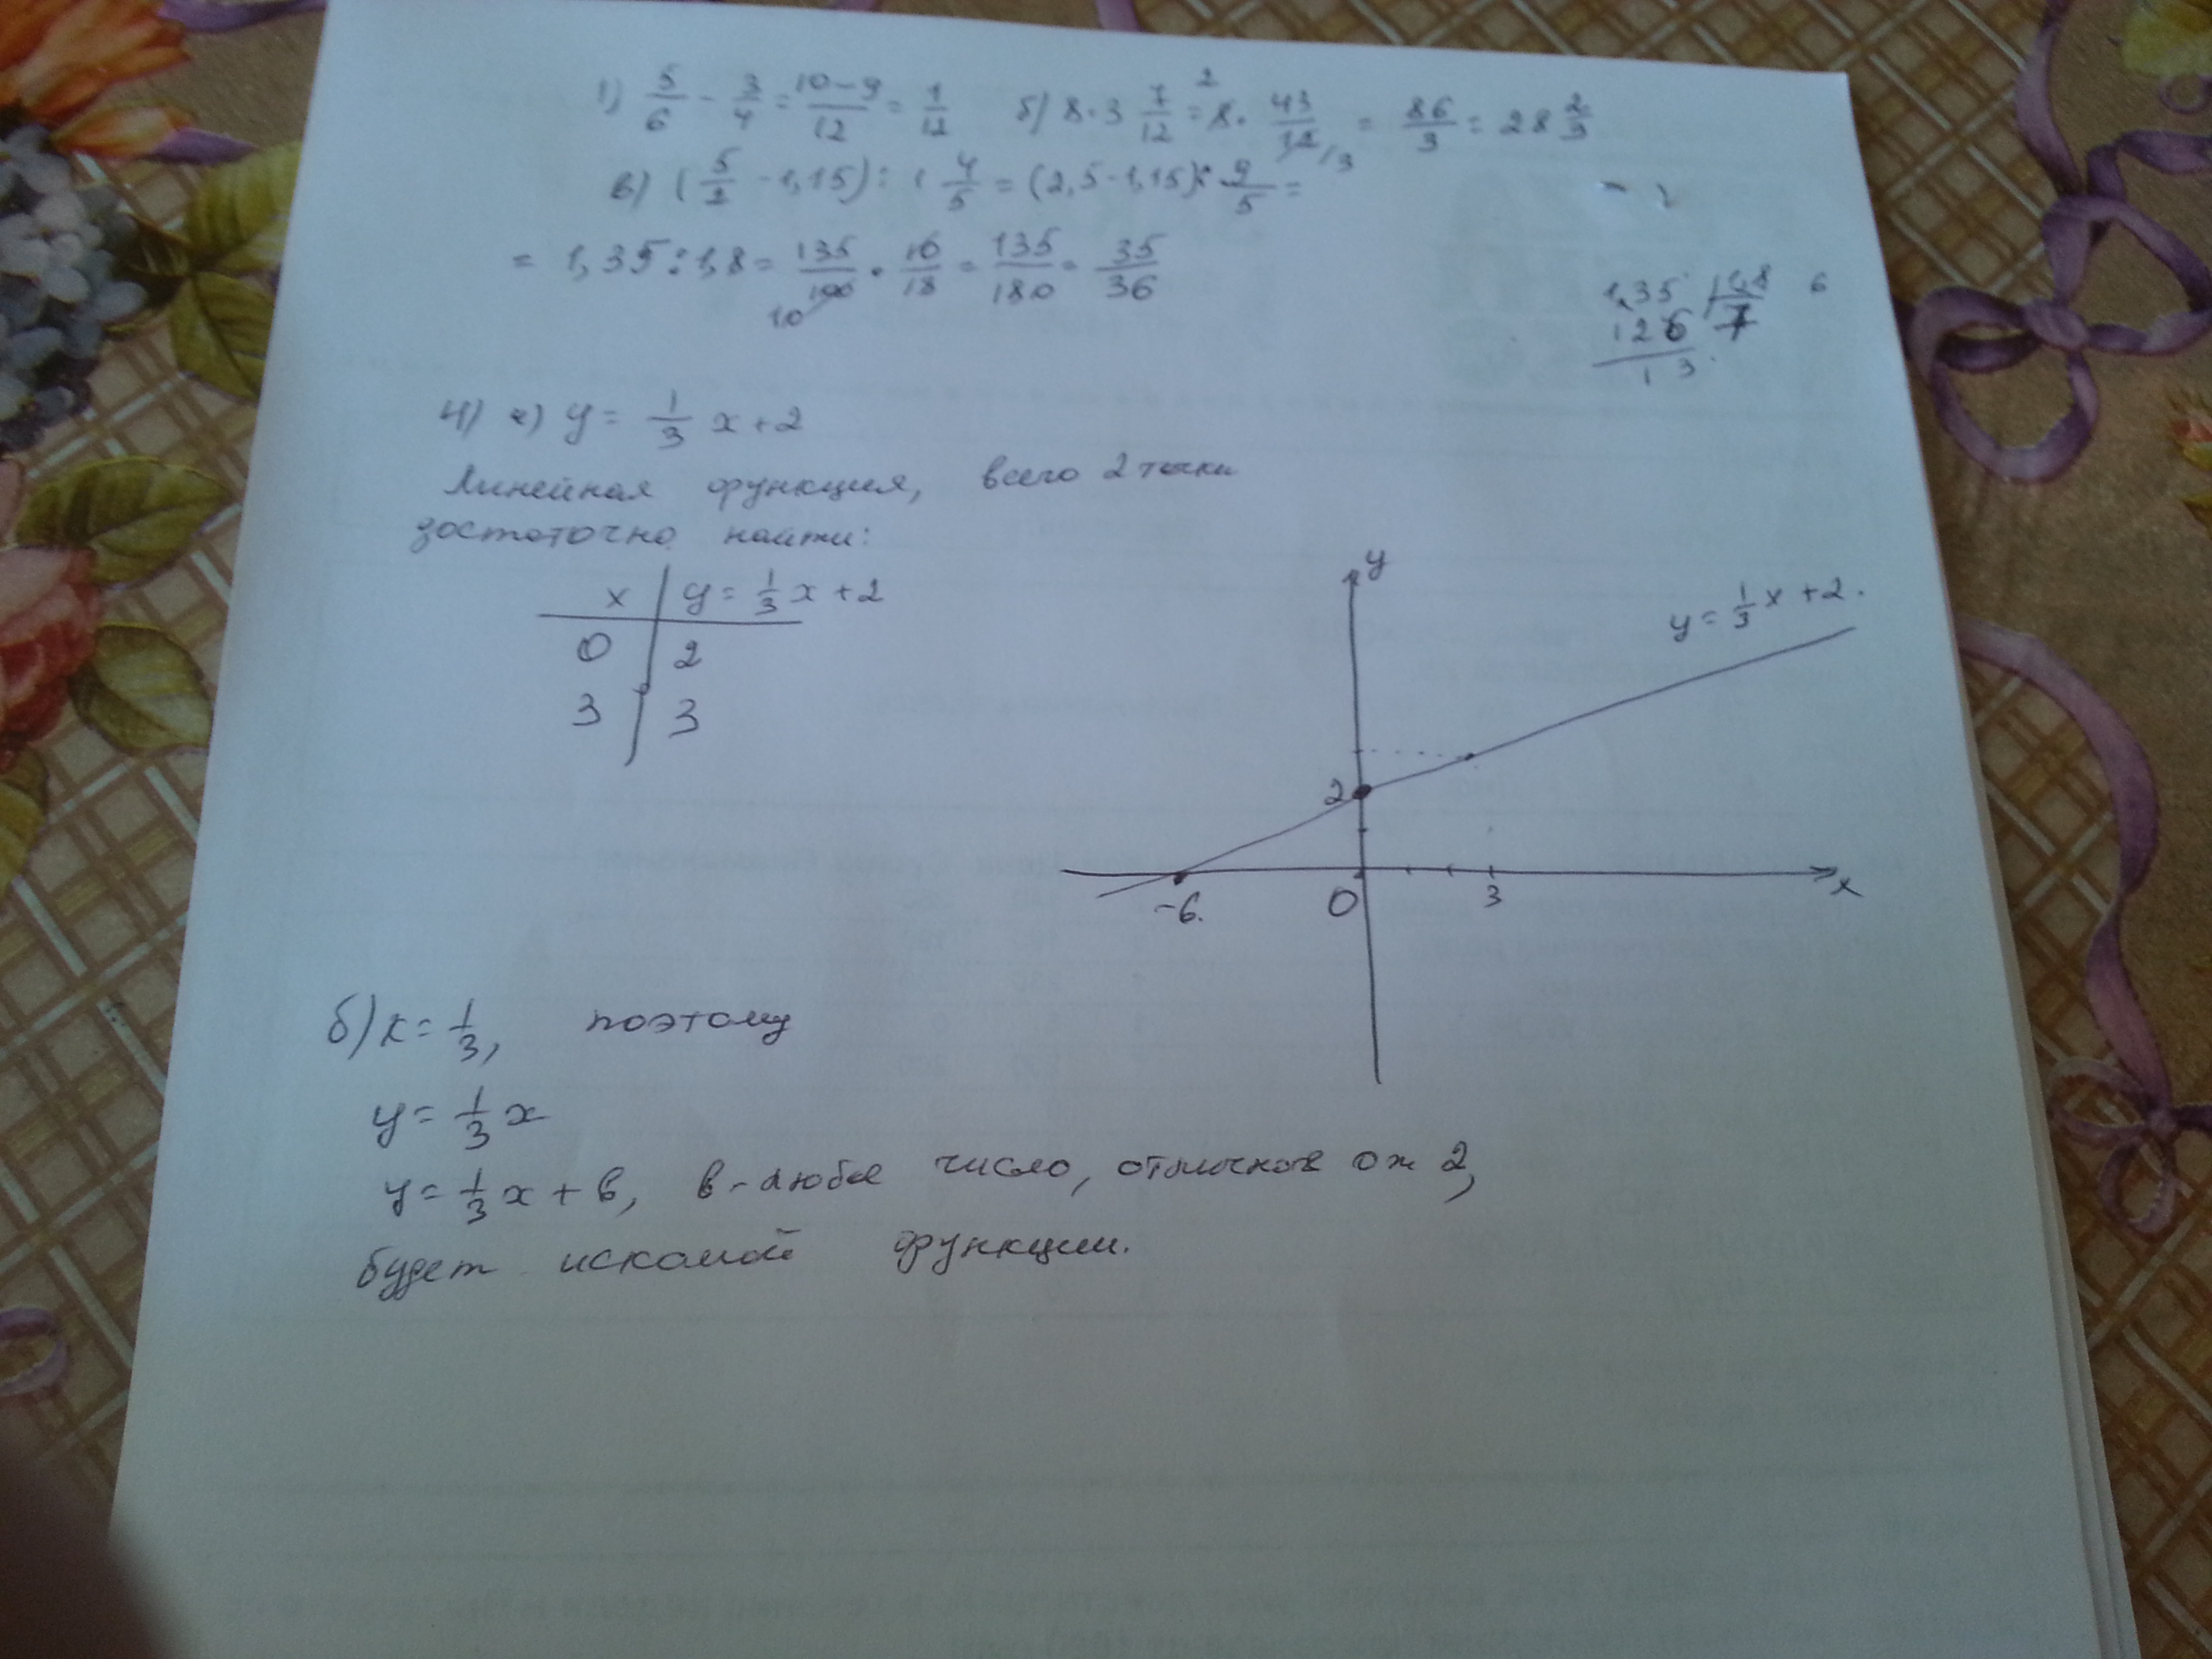 1) 5/6 - 3/4 = 10-9/12 = 1/12 б) 8·3 7/12 = 8· 2 43/12 /3 = 86/3 = 28 2/3
в) (5/2 - 1,15) : 1 4/5 = (2,5-1,15): 9/5 =
= 1,35 : 1,8 = 135/100 10 · 10/18 = 135/180 = 35/36
1,35 1,8 6
126 7
13
4) а) y = 1/3 x + 2
Линейная функция, всего 2 точки
достаточно найти:
x y = 1/3 x + 2
0 2
3 3
y
y = 1/3 x + 2.
2
-6. 0 3 x
б) к = 1/3, поэтому
y = 1/3 x
y = 1/3 x + в, в - любое число, отличное от 2,
будет искомой функции.